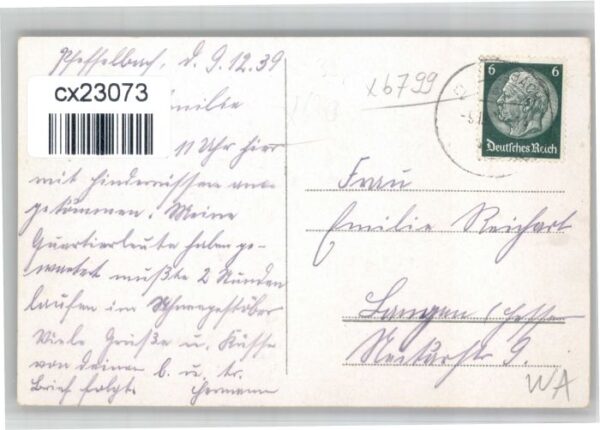 Pfeffelbach, d. 9.12.39
cx23073
Emilie
11 Uhr hier
mit Hindernissen ange-
gekommen. Meine
Quartierleute haben ge-
wartet mußte 2 Stunden
laufen im Schneegestöber
Viele Grüße u. Küsse
von deinen b. u. tr.
Brief folgt. Hermann
xb799
6 6
Deutsches Reich
Frau
Emilie Reichart
Langen / Hessen
Neckarstr 9.
WA